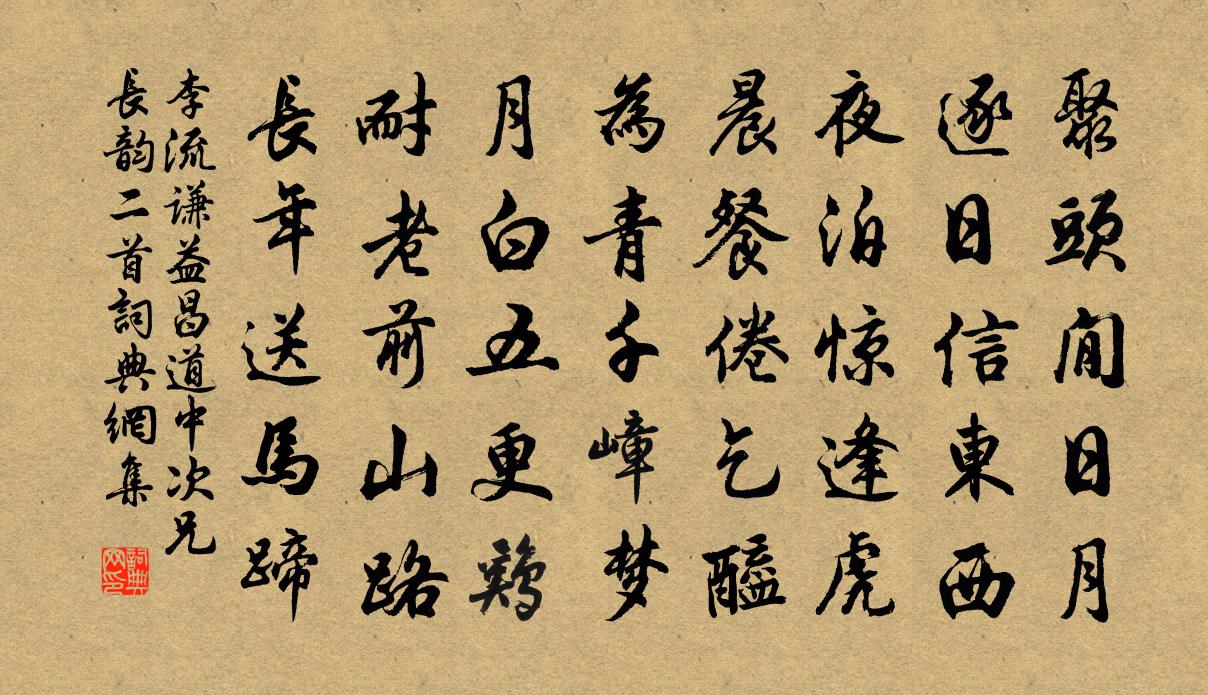 聚頭閒日月
逐日信東西
夜泊惊逢虎
晨餐倦乞醯
為青千嶂梦
月白五更鷄
耐老前山路
長年送馬蹄
李流谦益昌道中次兄
長韵二首詞典網集
詞典网印